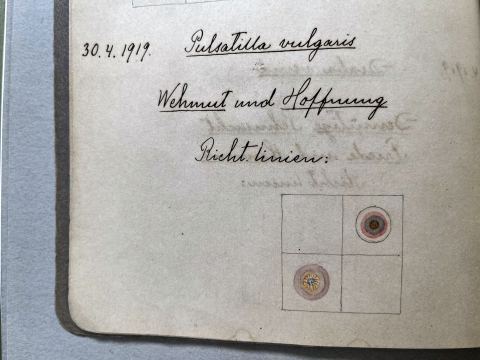 30.4.1919. Pulsatilla vulgaris
Wehmut und Hoffnung
Richt linien: